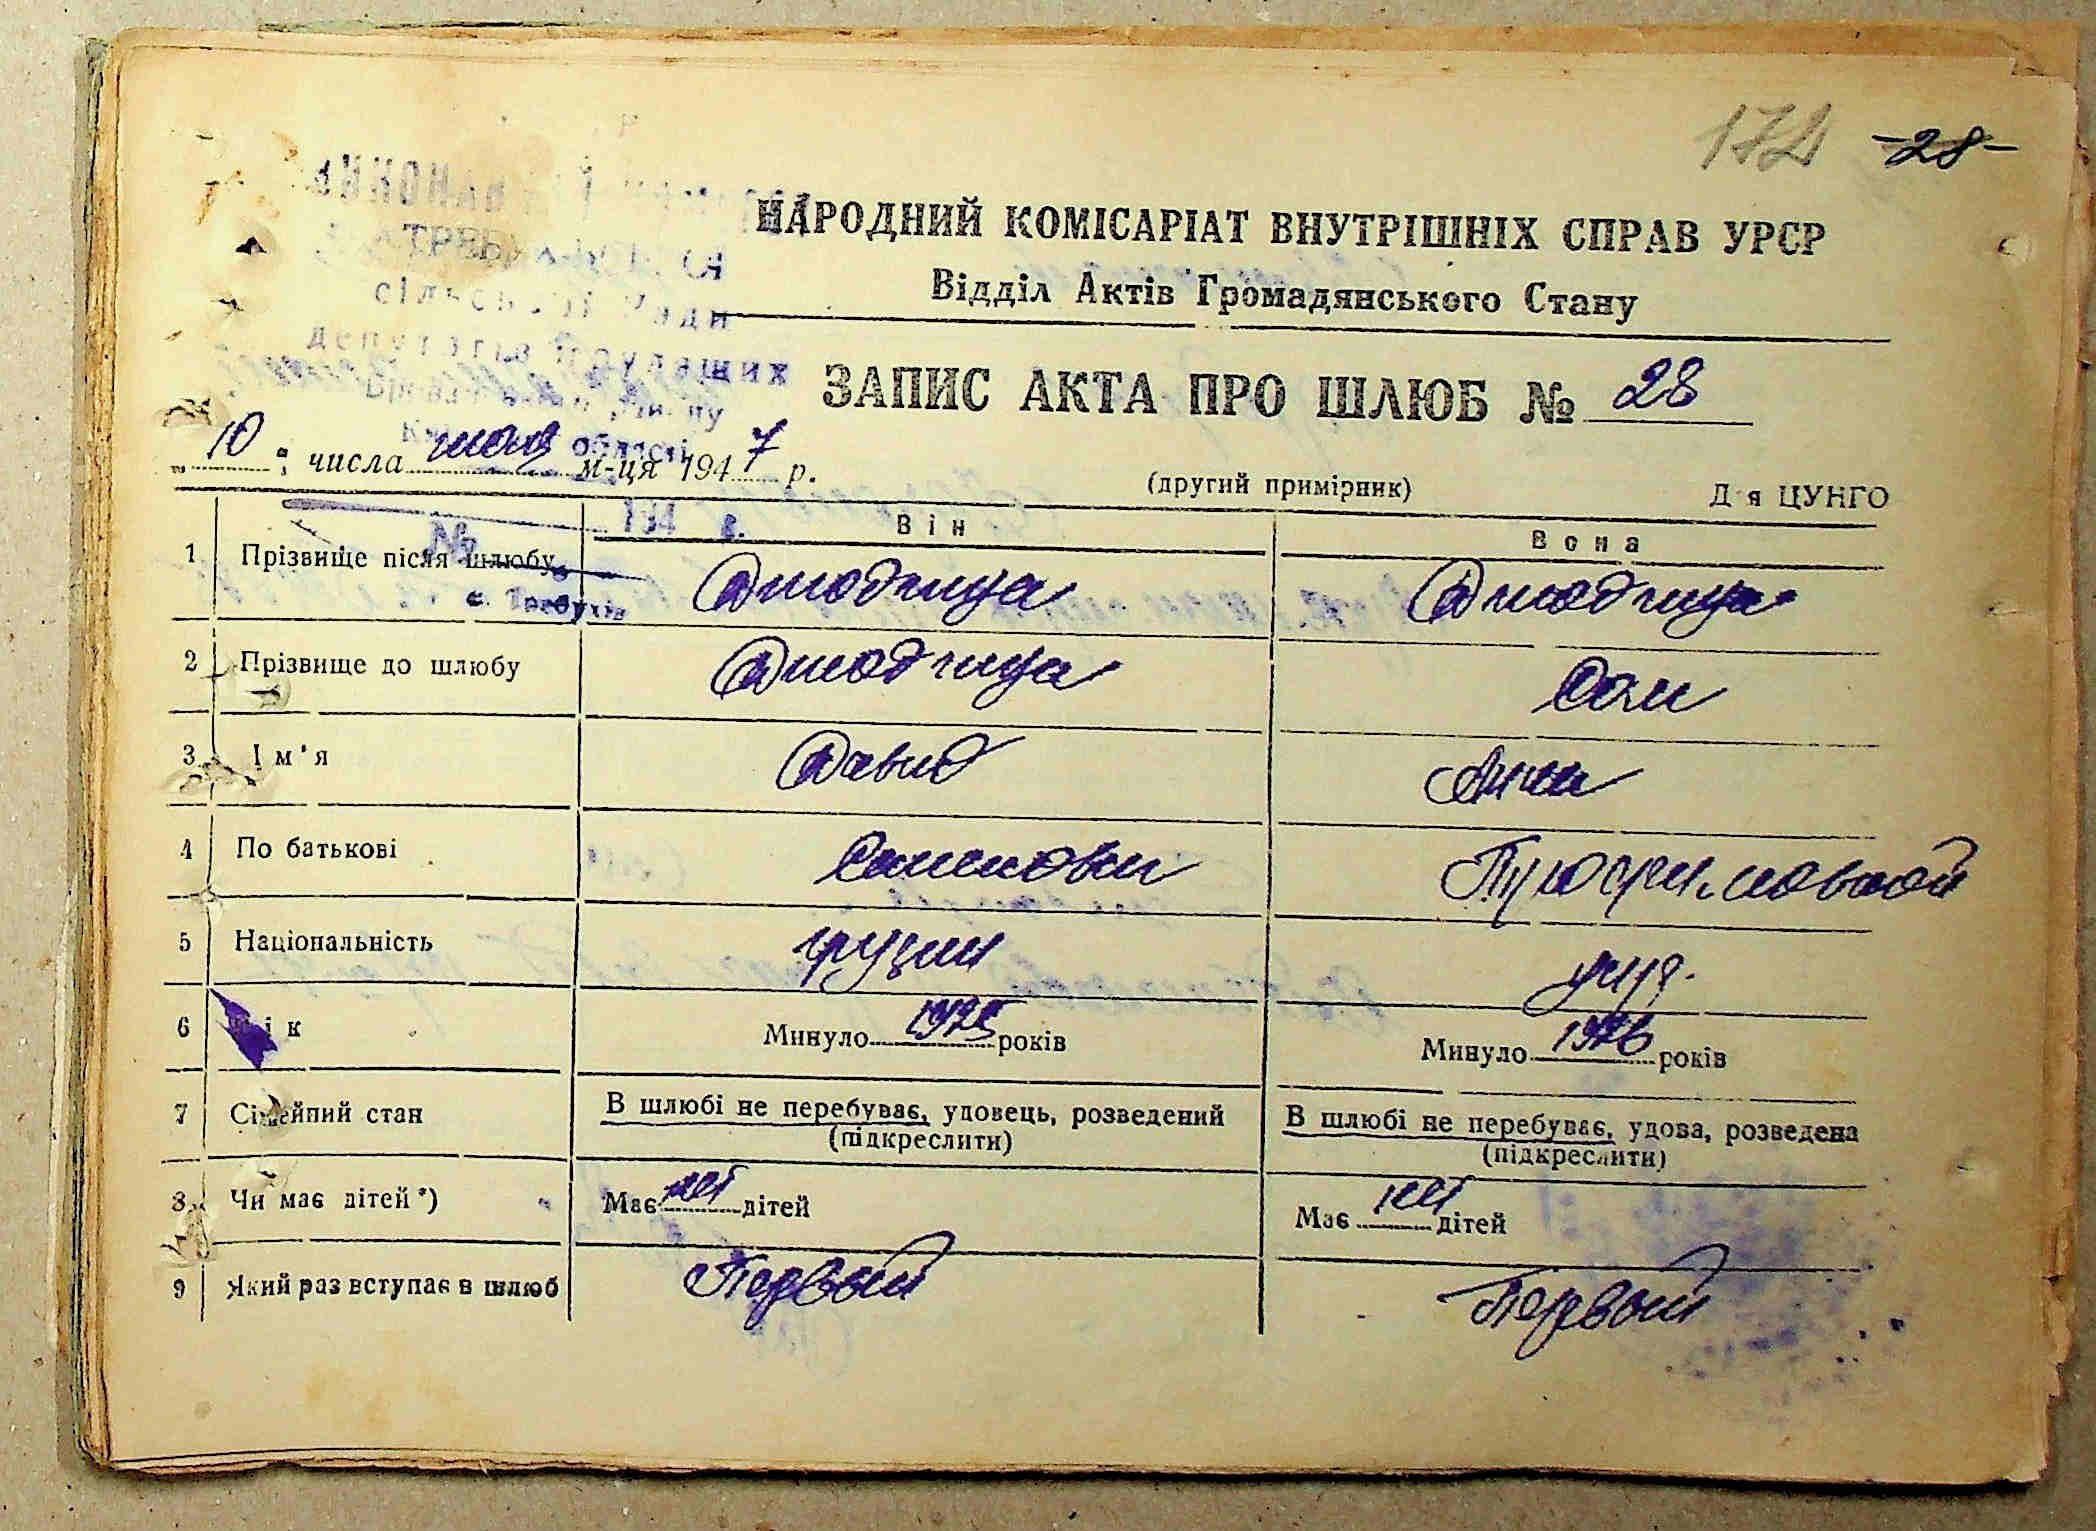 172 -28-
НАРОДНИЙ КОМІСАРІАТ ВНУТРІШНІХ СПРАВ УРСР
Відділ Актів Громадянського Стану
сільської Ради
депутатів трудящих
області
ЗАПИС АКТА ПРО ШЛЮБ № 28
„10" числа мая м-ця 1947 р.
(другий примірник) Для ЦУНГО
№ 194 р.
с. Требухів
Він Вона
1 Прізвище після шлюбу
2 Прізвище до шлюбу Сом
3 Ім'я Давид Анна
4 По батькові
5 Національність грузин укр.
6 Вік Минуло 1925 років Минуло 1926 років
7 Сімейний стан В шлюбі не перебуває, удовець, розведений (підкреслити) В шлюбі не перебуває, удова, розведена (підкреслити)
8 Чи має дітей*) Має нет дітей Має нет дітей
9 Який раз вступає в шлюб Первый Первый